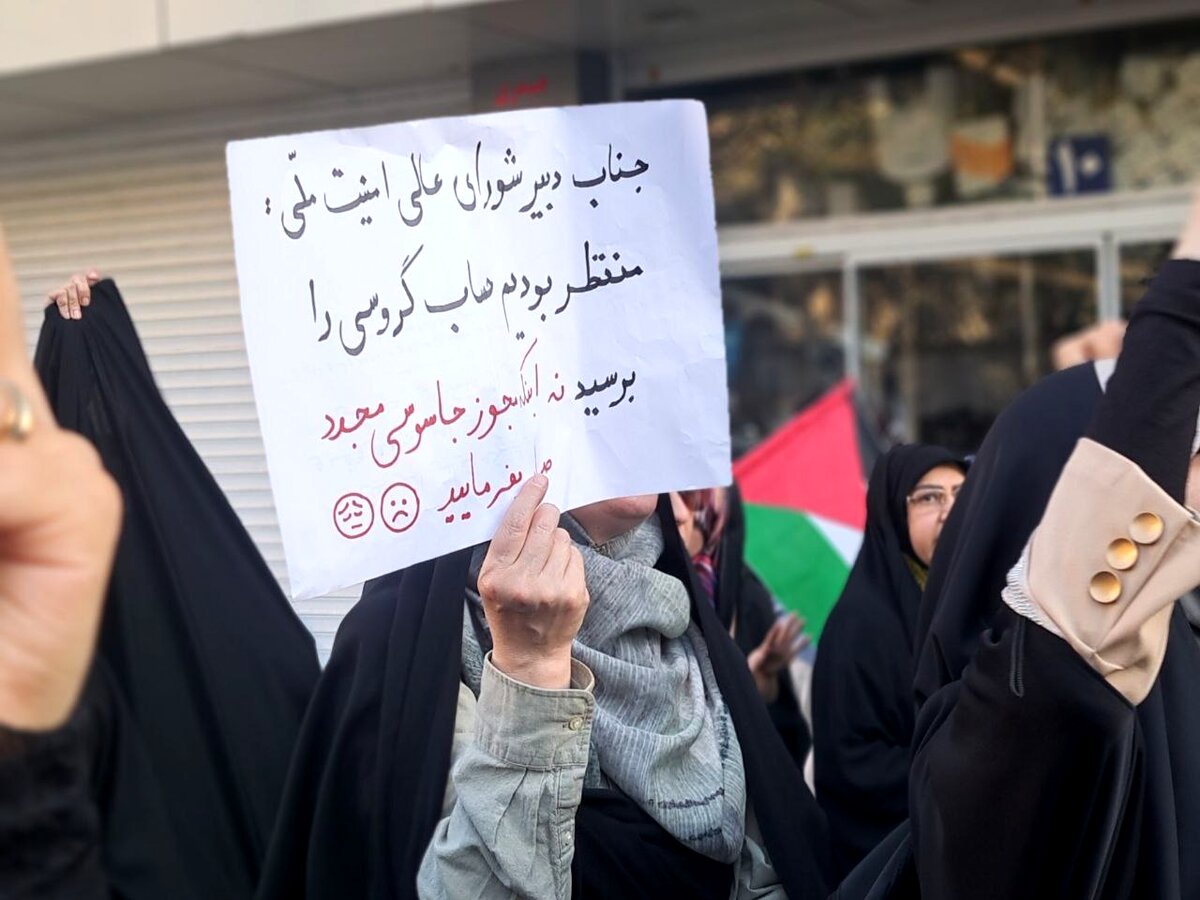 جناب دبیر شورای عالی امنیت ملّی :
منتظر بودیم حساب گروسی را
برسید نه اینکه مجوز جاسوسی مجدد
بفرمایید
۱۰